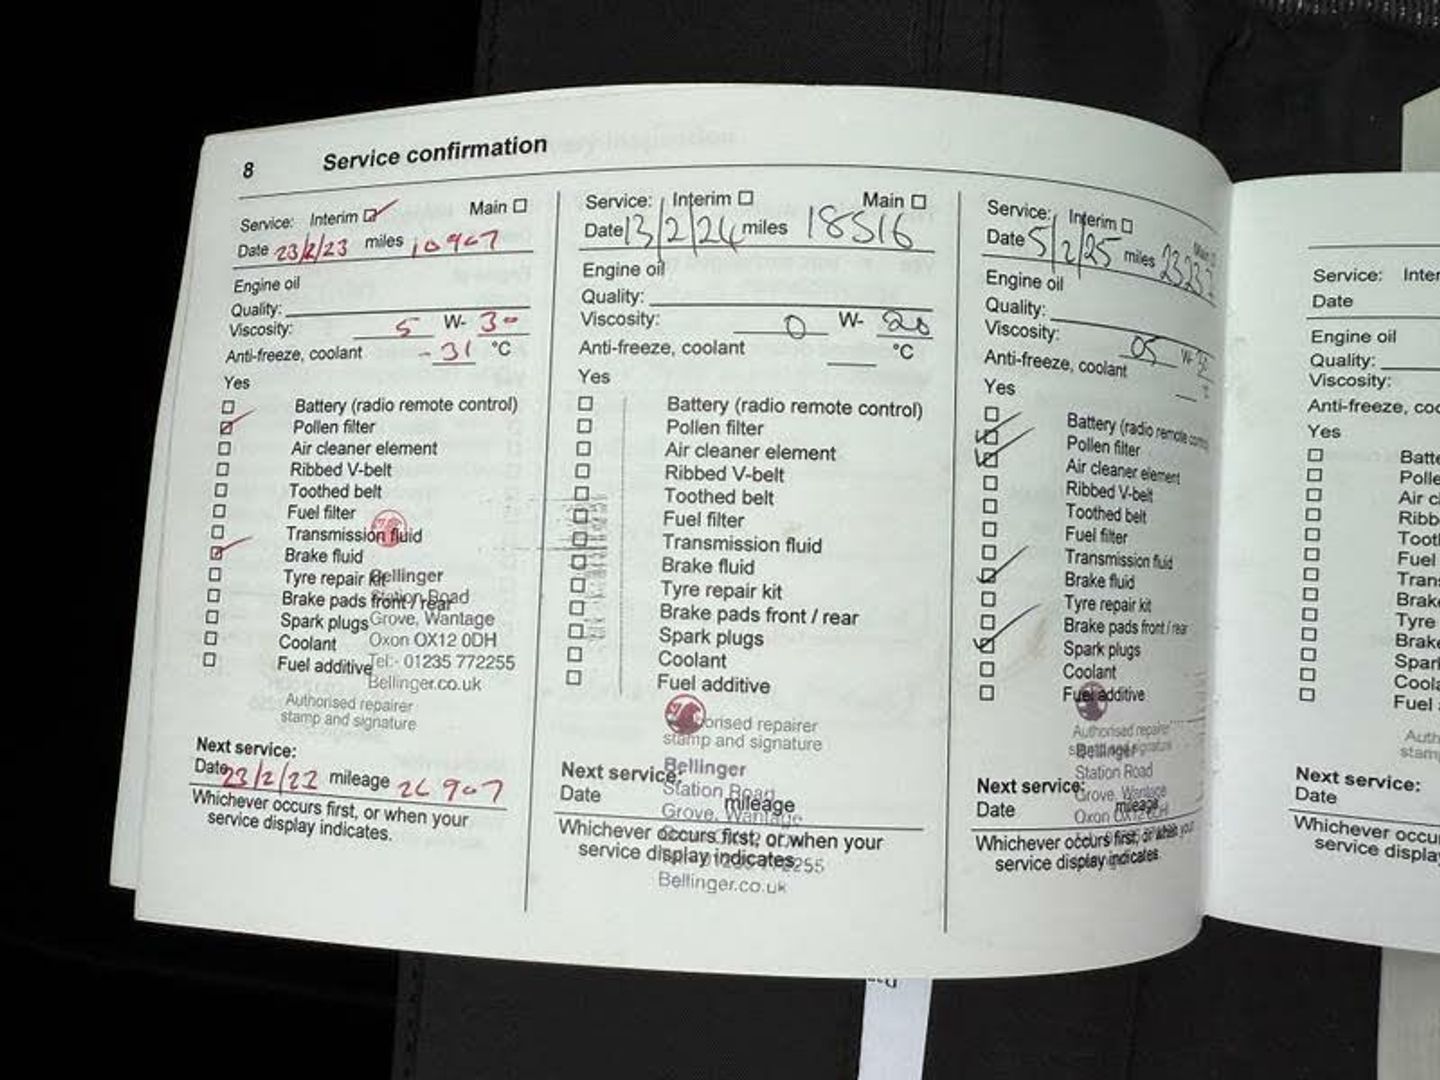 8 Service confirmation
Service: Interim Main
Date 23/2/23 miles 10907
Engine oil
Quality:
Viscosity: 5 W- 30
Anti-freeze, coolant -31 °C
Yes
Battery (radio remote control)
Pollen filter
Air cleaner element
Ribbed V-belt
Toothed belt
Fuel filter
Transmission fluid
Brake fluid
Tyre repair kit
Brake pads front / rear
Spark plugs
Coolant
Fuel additive
Bellinger
Station Road
Grove, Wantage
Oxon OX12 0DH
Tel:- 01235 772255
Bellinger.co.uk
Authorised repairer
stamp and signature
Next service:
Date 23/2/22 mileage 26907
Whichever occurs first, or when your
service display indicates.
Service: Interim Main
Date 13/2/24 miles 18516
Engine oil
Quality:
Viscosity: 0 W- 20
Anti-freeze, coolant °C
Yes
Battery (radio remote control)
Pollen filter
Air cleaner element
Ribbed V-belt
Toothed belt
Fuel filter
Transmission fluid
Brake fluid
Tyre repair kit
Brake pads front / rear
Spark plugs
Coolant
Fuel additive
orised repairer
stamp and signature
Bellinger
Station Road
Grove, Wantage
2255
Bellinger.co.uk
Next service:
Date mileage
Whichever occurs first, or when your
service display indicates.
Service: Interim Main
Date 5/2/25 miles 2323
Engine oil
Quality:
Viscosity: 05 W-
Anti-freeze, coolant
Yes
Battery (radio remote
Pollen filter
Air cleaner element
Ribbed V-belt
Toothed belt
Fuel filter
Transmission fluid
Brake fluid
Tyre repair kit
Brake pads front / rear
Spark plugs
Coolant
Fuel additive
Authorised repairer
signature
Bellinger
Station Road
Grove, Wantage
Oxon OX12 0DH
Next service:
Date mileage
Whichever occurs first, or when your
service display indicates.
Service: Inter
Date
Engine oil
Quality:
Viscosity:
Anti-freeze, coo
Yes
Batte
Polle
Air cl
Ribb
Tooth
Fuel
Tran
Brake
Tyre
Brake
Spar
Coola
Fuel
Auth
stam
Next service:
Date
Whichever occu
service display